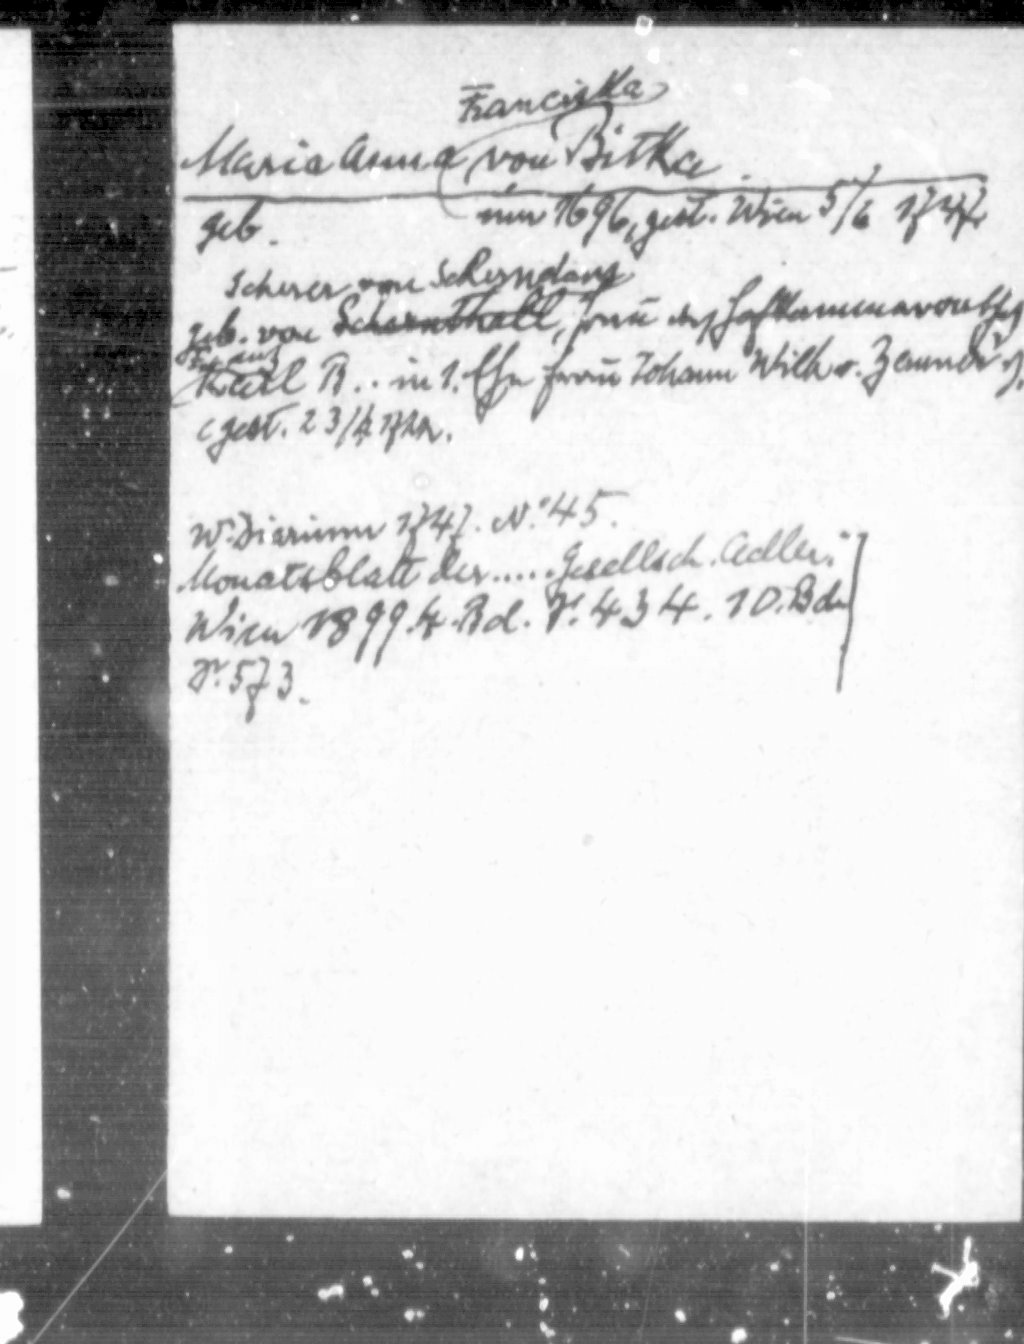 Franciska
Maria Anna von Bitka
geb. um 1696, gest. Wien 5/6 1747
Scherer von
geb. von Schernthall, Frau des
Franz
Karl B.. in 1. Ehe Frau Johann Wilh. v.
gest. 23/4
W. Diarium 1747. No. 45.
Monatsblatt der..... Gesellsch. Adler."
Wien 1899. 4. Bd. S. 434. 10. Bd.
S. 573.